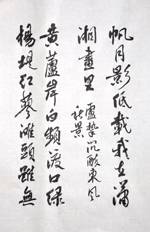 帆月影低載我在瀟
湘畫里
盧摯沉醉東風
秋景
黃蘆岸白蘋渡口綠
楊堤紅蓼灘頭雖無